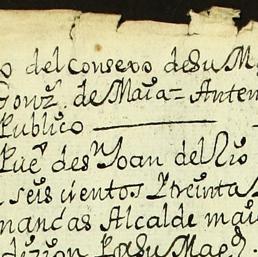 o del consexo de Su M
Gonz. de Maia = Antem
Publico
Pue des Joan del Rio
seis cientos Ytreinta
mancas Alcalde mai
dizion Por Su Magd.